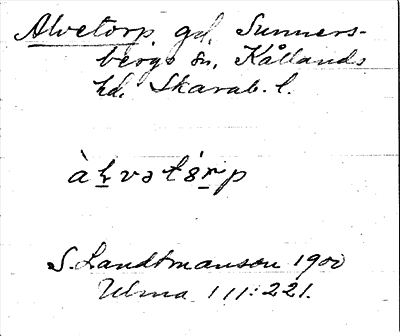 Alvetorp, gd, Sunners-
bergs sn, Kållands
hd, Skarab. l.
S. Landtmanson 1900
Ulma 111:221.